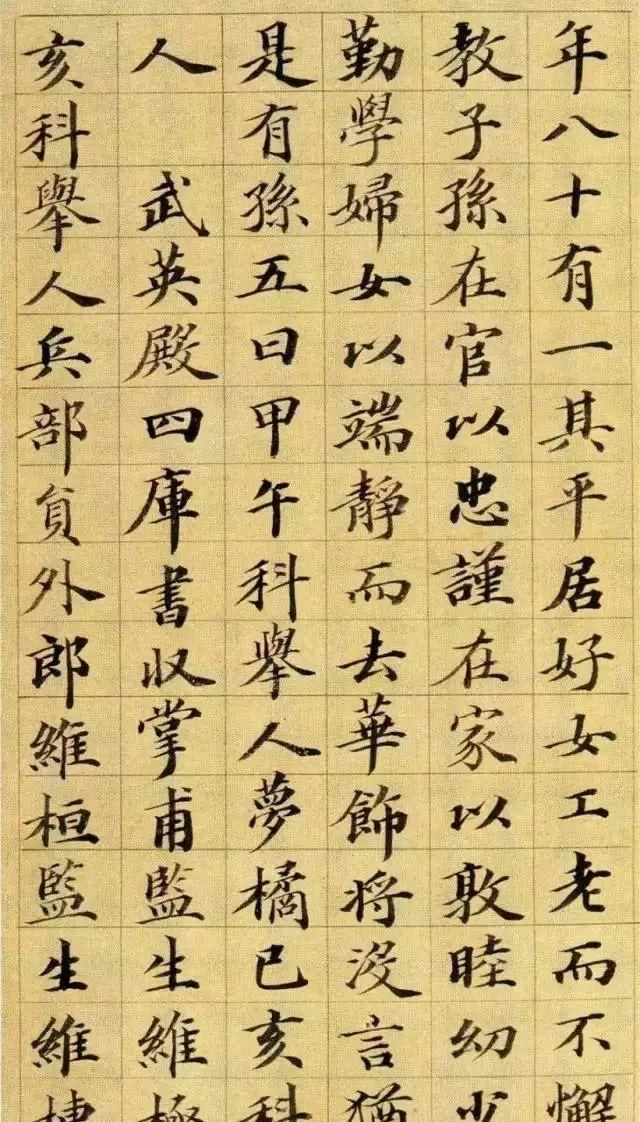 年八十有一其平居好女工老而不懈
教子孫在官以忠謹在家以敦睦幼少
勤學婦女以端靜而去華飾將没言猶
是有孫五曰甲午科舉人夢橘已亥科
人武英殿四庫書収掌甫監生維極
亥科舉人兵部負外郎維桓監生維